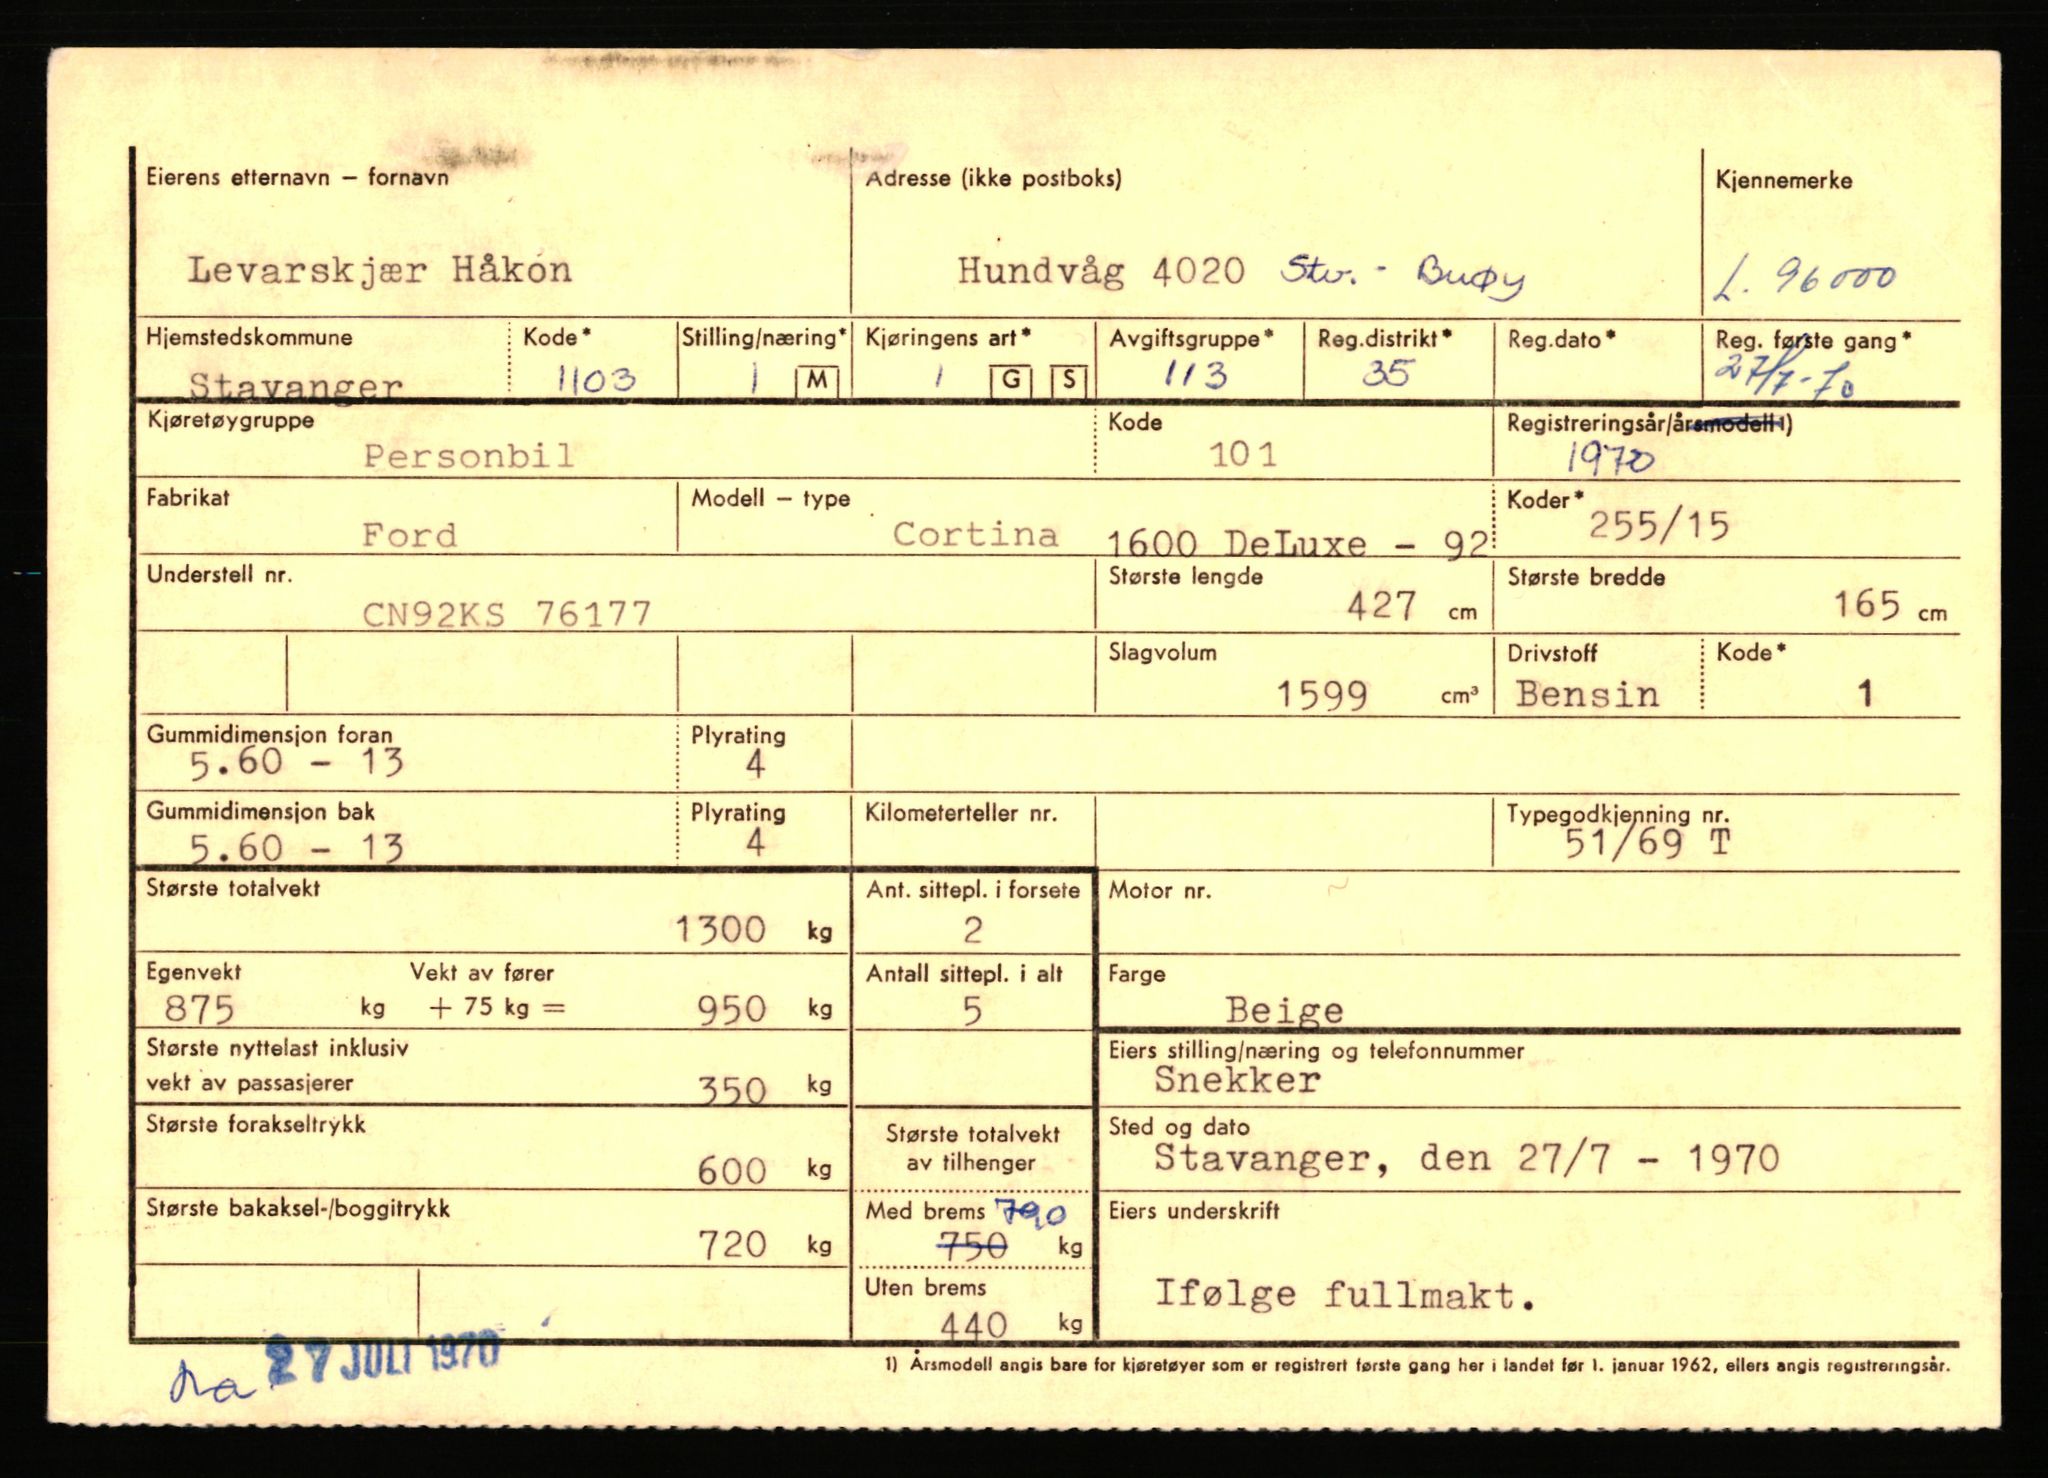 Eierens etternavn — fornavn
Adresse (ikke postboks)
Kjennemerke
Levarskjær Håkon
Hundvåg 4020 Stv. - Buøy
L. 96000
Hjemstedskommune
Kode*
Stilling/næring*
Kjøringens art*
Avgiftsgruppe*
Reg.distrikt*
Reg.dato*
Reg. første gang*
Stavanger
1103
1 M
1 G S
113
35
27/7-70
Kjøretøygruppe
Kode
Registreringsår/årsmodell 1)
Personbil
101
1970
Fabrikat
Modell — type
Koder*
Ford
Cortina 1600 DeLuxe - 92
255/15
Understell nr.
Største lengde
Største bredde
CN92KS 76177
427 cm
165 cm
Slagvolum
Drivstoff
Kode*
1599 cm³
Bensin
1
Gummidimensjon foran
Plyrating
5.60 - 13
4
Gummidimensjon bak
Plyrating
Kilometerteller nr.
Typegodkjenning nr.
5.60 - 13
4
51/69 T
Største totalvekt
Ant. sittepl. i forsete
Motor nr.
1300 kg
2
Egenvekt
Vekt av fører
Antall sittepl. i alt
Farge
875 kg + 75 kg = 950 kg
5
Beige
Største nyttelast inklusiv
vekt av passasjerer
350 kg
Eiers stilling/næring og telefonnummer
Snekker
Største forakseltrykk
600 kg
Største totalvekt
av tilhenger
Sted og dato
Stavanger, den 27/7 - 1970
Største bakaksel-/boggitrykk
720 kg
Med brems 790
750 kg
Eiers underskrift
Uten brems
440 kg
Ifølge fullmakt.
27 JULI 1970
1) Årsmodell angis bare for kjøretøyer som er registrert første gang her i landet før 1. januar 1962, ellers angis registreringsår.